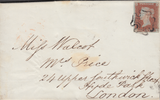 Miss Walcot
Mrs Price
24 Upper Southwick Street
Hyde Park
London